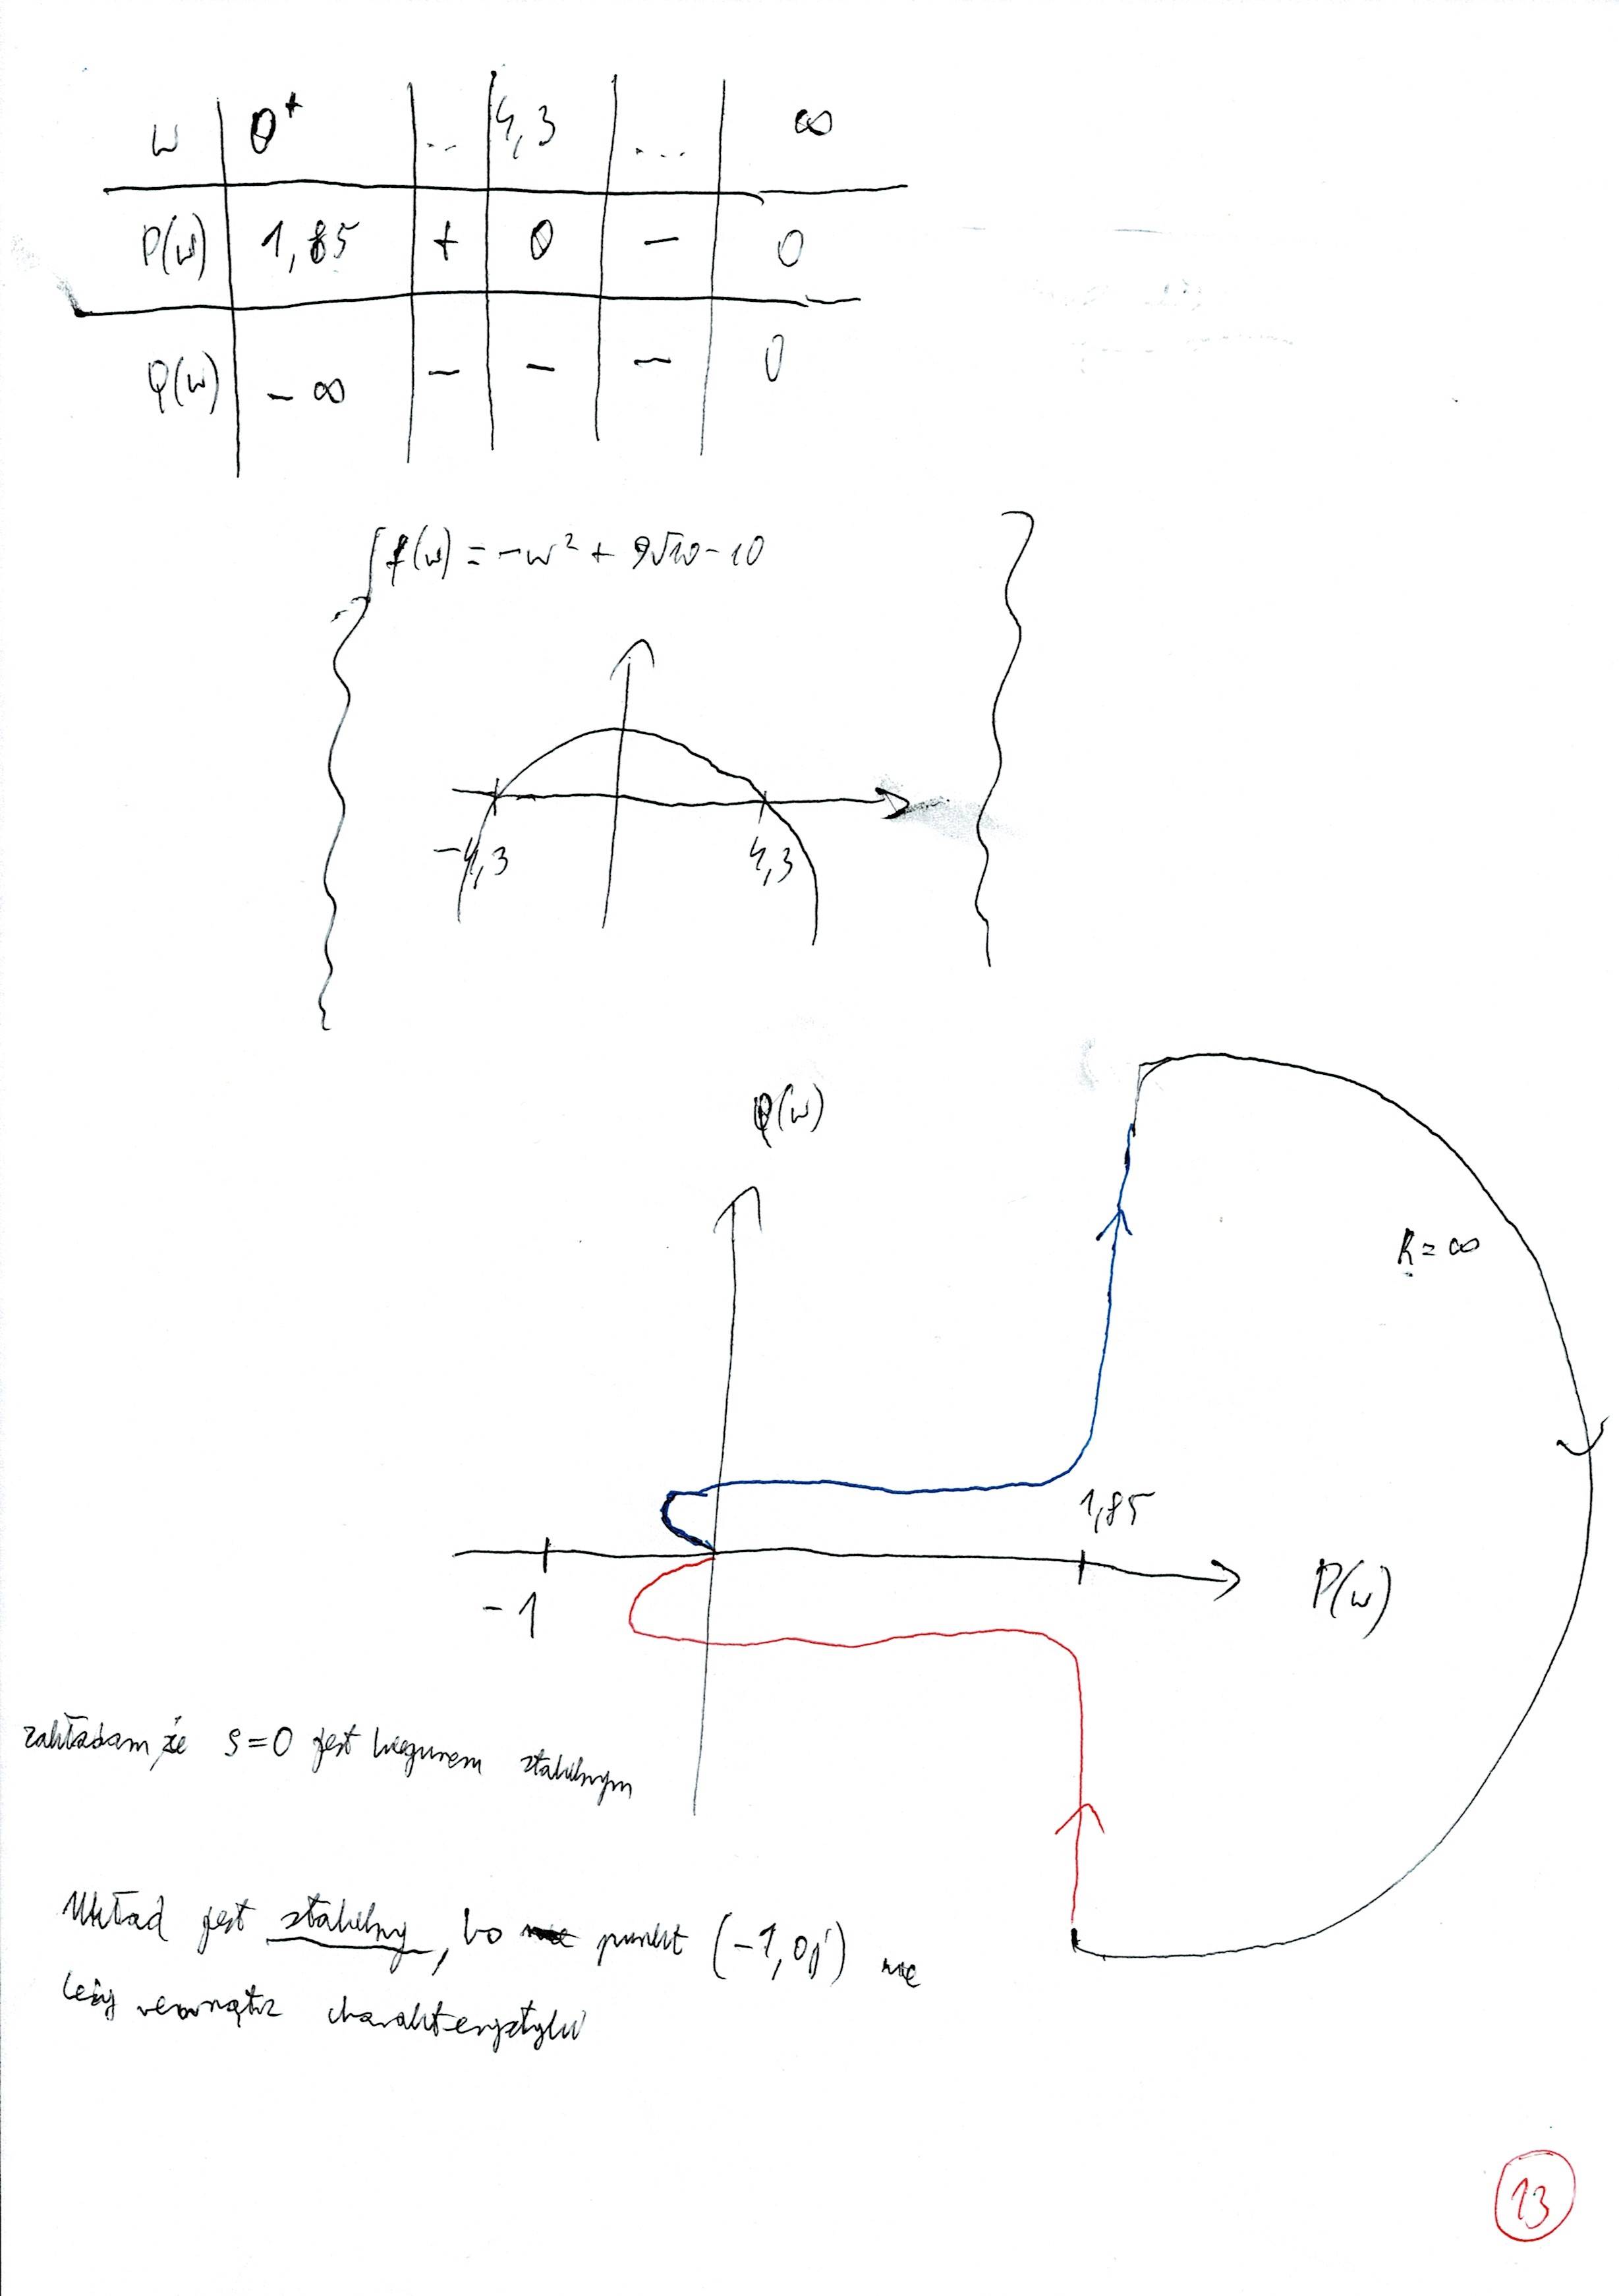 w 0⁺ .. 4,3 ... ∞
P(w) 1,85 + 0 − 0
Q(w) −∞ − − − 0
f(w) = −w² + 9√10 − 10
−4,3 4,3
Q(w)
R = ∞
1,85
−1 P(w)
zakładam że s=0 jest biegunem stabilnym
Układ jest stabilny, bo punkt (−1, 0j) nie
leży wewnątrz charakterystyki
13